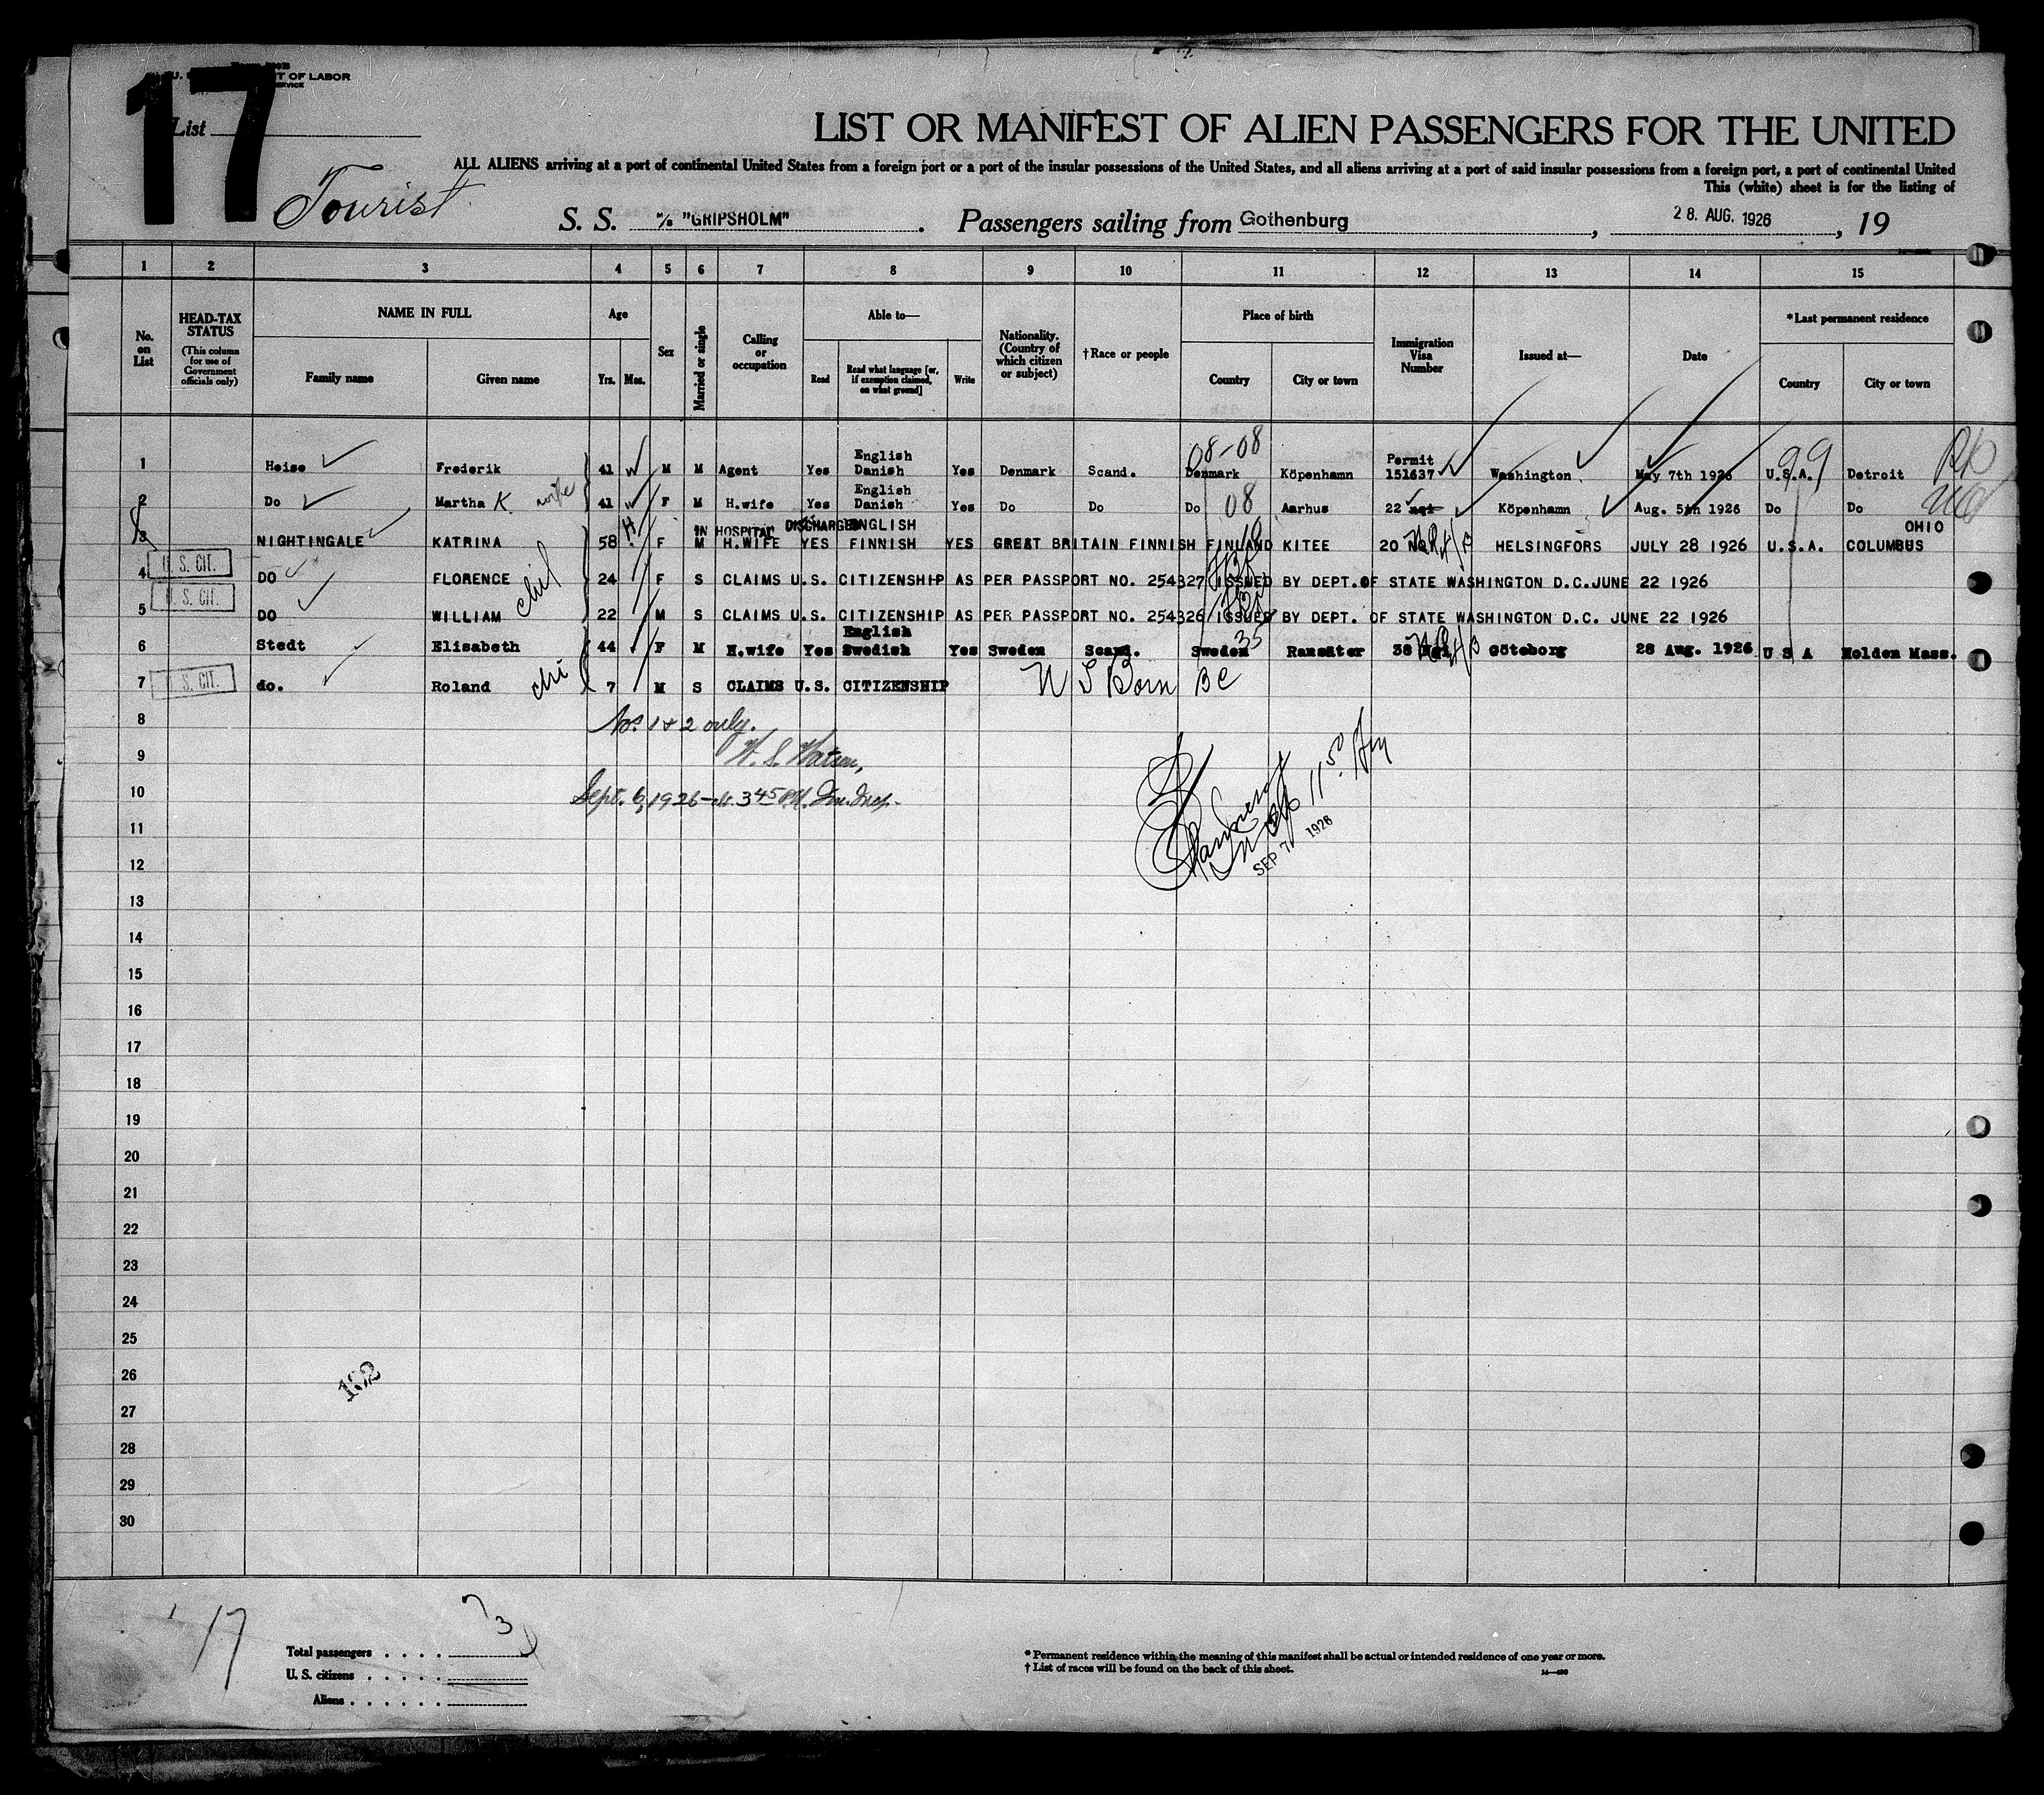 17
U. S. DEPARTMENT OF LABOR
SERVICE
List
Tourist
LIST OR MANIFEST OF ALIEN PASSENGERS FOR THE UNITED
ALL ALIENS arriving at a port of continental United States from a foreign port or a port of the insular possessions of the United States, and all aliens arriving at a port of said insular possessions from a foreign port, a port of continental United
This (white) sheet is for the listing of
S. S. M/S "GRIPSHOLM". Passengers sailing from Gothenburg, 28. AUG. 1926, 19
1 2 3 4 5 6 7 8 9 10 11 12 13 14 15
No. on List
HEAD-TAX STATUS (This column for use of Government officials only)
NAME IN FULL
Family name Given name
Age
Yrs. Mos.
Sex
Married or single
Calling or occupation
Able to—
Read Read what language [or, if exemption claimed, on what ground] Write
Nationality. (Country of which citizen or subject)
†Race or people
Place of birth
Country City or town
Immigration Visa Number
Issued at—
Date
*Last permanent residence
Country City or town
08-08 99
1 Heise Frederik 41 M M Agent Yes English Danish Yes Denmark Scand. Denmark Köpenhamn Permit 151637 Washington May 7th 1926 U.S.A. Detroit
2 Do Martha K. wife 41 F M H.wife Yes English Danish Yes Do Do Do 08 Aarhus 22 Köpenhamn Aug. 5th 1926 Do Do
IN HOSPITAL DISCHARGED
3 NIGHTINGALE KATRINA 58 F M H.WIFE YES ENGLISH FINNISH YES GREAT BRITAIN FINNISH FINLAND KITEE 20 HELSINGFORS JULY 28 1926 U.S.A. OHIO COLUMBUS
U. S. CIT.
4 DO FLORENCE 24 F S CLAIMS U.S. CITIZENSHIP AS PER PASSPORT NO. 254327 ISSUED BY DEPT.OF STATE WASHINGTON D.C.JUNE 22 1926
U. S. CIT.
5 DO WILLIAM 22 M S CLAIMS U.S. CITIZENSHIP AS PER PASSPORT NO. 254326 ISSUED BY DEPT. OF STATE WASHINGTON D.C. JUNE 22 1926
6 Stedt Elisabeth 44 F M H.wife Yes English Swedish Yes Sweden Scand. Sweden 35 Ransäter 38 Göteborg 28 Aug. 1926 U S A Holden Mass.
U. S. CIT.
7 do. Roland 7 M S CLAIMS U.S. CITIZENSHIP U S Born BC
8 Nos 1 & 2 only.
9 W. S. Watson,
10 Sept. 6, 1926 — 3 45 P.M. Im. Insp.
SEP 7 1926
11
12
13
14
15
16
17
18
19
20
21
22
23
24
25
26
27
28
29
30
17
3
Total passengers
U. S. citizens
Aliens
* Permanent residence within the meaning of this manifest shall be actual or intended residence of one year or more.
† List of races will be found on the back of this sheet.